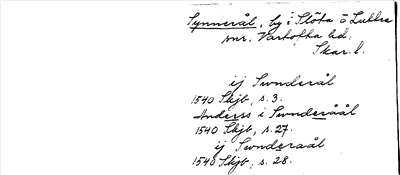 Synnerål, by i Slöta o Lukkra
snr. Vartofta hd,
Skar. l.
ij Swnderål
1540 Skjb, s. 3.
Anderss i Swnderåål
1540 Skjb, s. 27.
ij Swnderaål
1540 Skjb, s. 28.